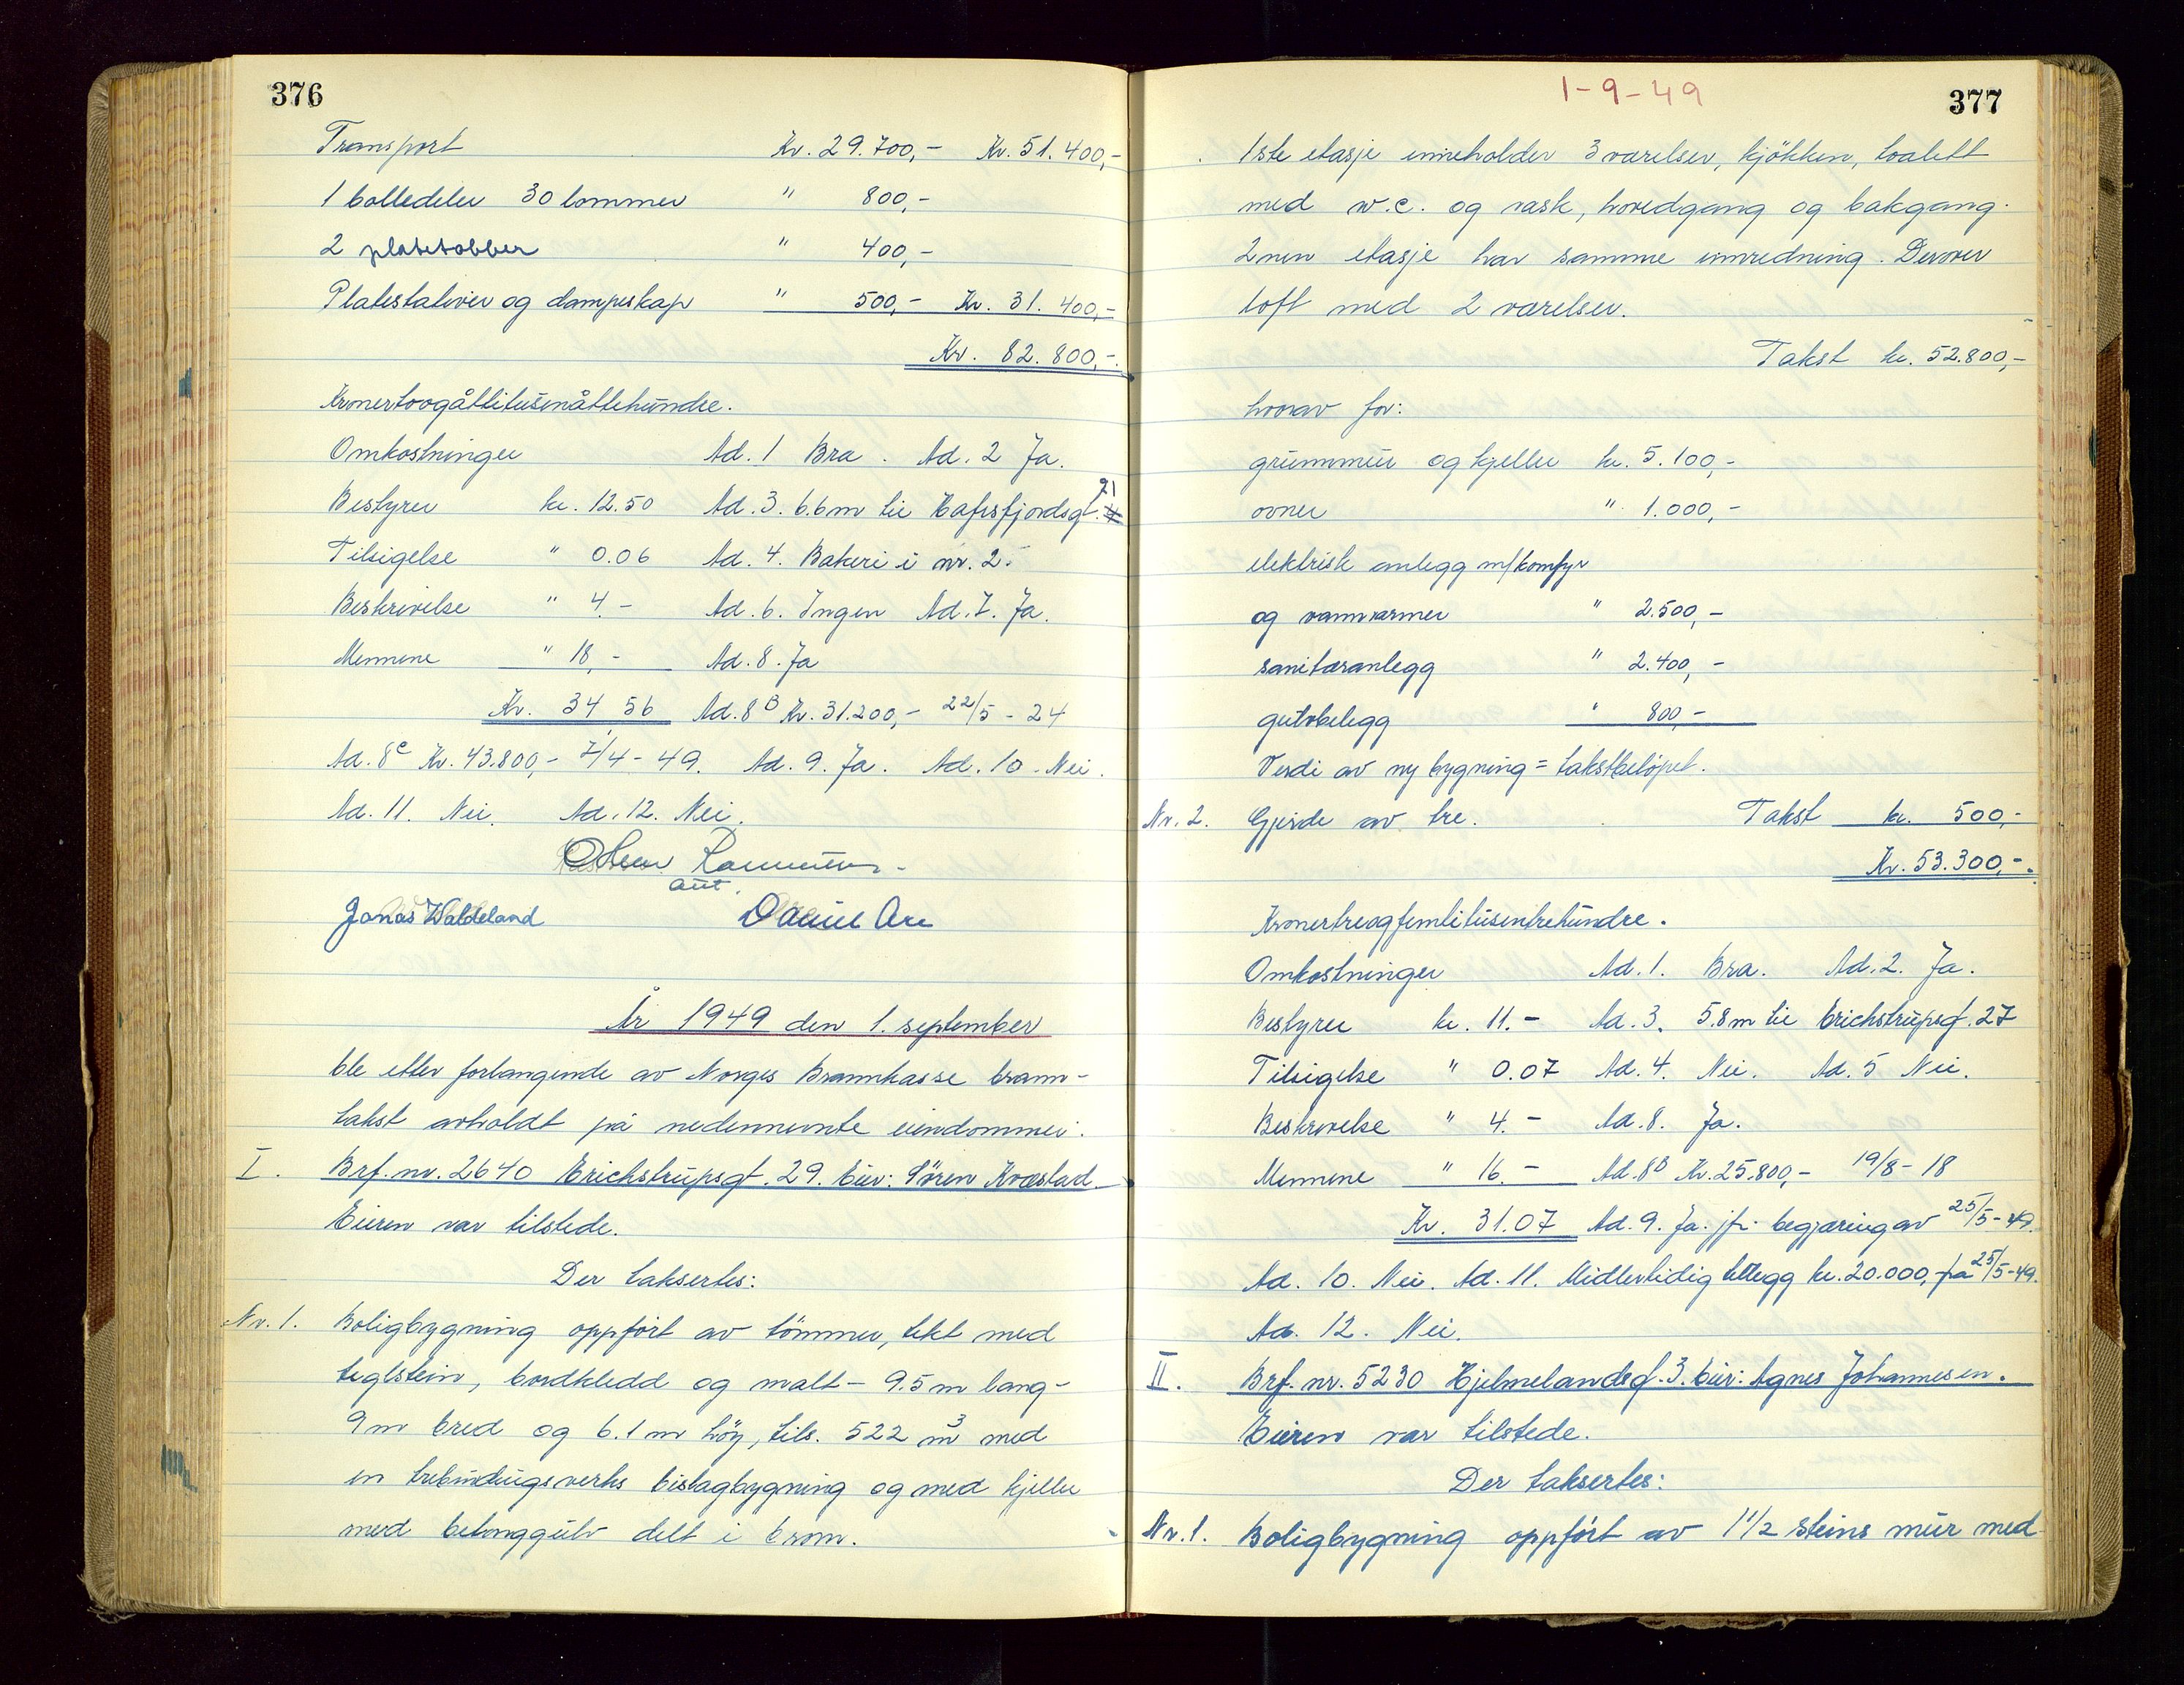 376
Transport Kr. 29.700,- Kr. 51.400,-
1 bolledeler 30 lommer " 800,-
2 platetobber " 400,-
Platestativer og dampeskap " 500,- Kr. 31.400,-
Kr. 82.800,-
Kronertoogåttitusenåttehundre.
Omkostninger Ad. 1 Bra. Ad. 2 Ja.
Bestyrer kr. 12.50 Ad. 3. 6.6m til Hafrsfjordsgt. 21
Tilsigelse " 0.06 Ad. 4. Bakeri i nr. 2.
Beskrivelse " 4.- Ad. 6. Ingen Ad. 7. Ja.
Mennene " 18,- Ad. 8. Ja
Kr. 34.56 Ad. 8B Kr. 31.200,- 22/5 - 24
Ad. 8c Kr. 43.800,- 7/4 - 49. Ad. 9. Ja. Ad. 10. Nei.
Ad. 11. Nei. Ad. 12. Nei.
aut.
Jonas Waldeland Daniel Are
År 1949 den 1. september
ble etter forlangende av Norges Brannkasse brann-
takst avholdt på nedennevnte eiendommer.
I. Brf. nr. 2640 Erichstrupsgt. 29. Eier: Sören Kvæstad.
Eieren var tilstede.
Der taksertes:
Nr. 1. Boligbygning oppført av tömmer, tekt med
teglstein, bordkledd og malt - 9.5 m lang -
9 m bred og 6.1 m höy, tils. 522 m3 med
en trebindingsverks bislagbygning og med kjeller
med betonggulv delt i 6 rom.
1-9-49
377
1ste etasje inneholder 3 værelser, kjökken, toalett
med w.c. og vask, hovedgang og bakgang.
2nen etasje har samme innredning. Derover
loft med 2 værelser.
Takst kr. 52.800,-
hvorav for:
grunnmur og kjeller kr. 5.100,-
ovner " 1.000,-
elektrisk anlegg m/komfyr
og vannvarmer " 2.500,-
sanitæranlegg " 2.400,-
gulvbelegg " 800,-
Verdi av ny bygning = takstbelöpet.
Nr. 2. Gjerde av tre. Takst kr. 500,-
Kr. 53.300,-
Kronertreogfemtitusentrehundre.
Omkostninger Ad. 1. Bra. Ad. 2. Ja.
Bestyrer kr. 11.- Ad. 3. 5.8m til Erichstrupsgt. 27
Tilsigelse " 0.07 Ad. 4. Nei. Ad. 5 Nei.
Beskrivelse " 4.- Ad. 8. Ja.
Mennene " 16.- Ad. 8B Kr. 25.800,- 19/8 - 18
Kr. 31.07 Ad. 9. Ja. jfr. begjæring av 25/5-49.
Ad. 10. Nei. Ad. 11. Midlertidig tillegg kr. 20.000,- fra 25/5-49.
Ad. 12. Nei.
II. Brf. nr. 5230 Hjelmelandsgt. 3. Eier: Agnes Johannesen.
Eieren var tilstede.
Der taksertes:
Nr. 1. Boligbygning oppført av 1 1/2 steins mur med